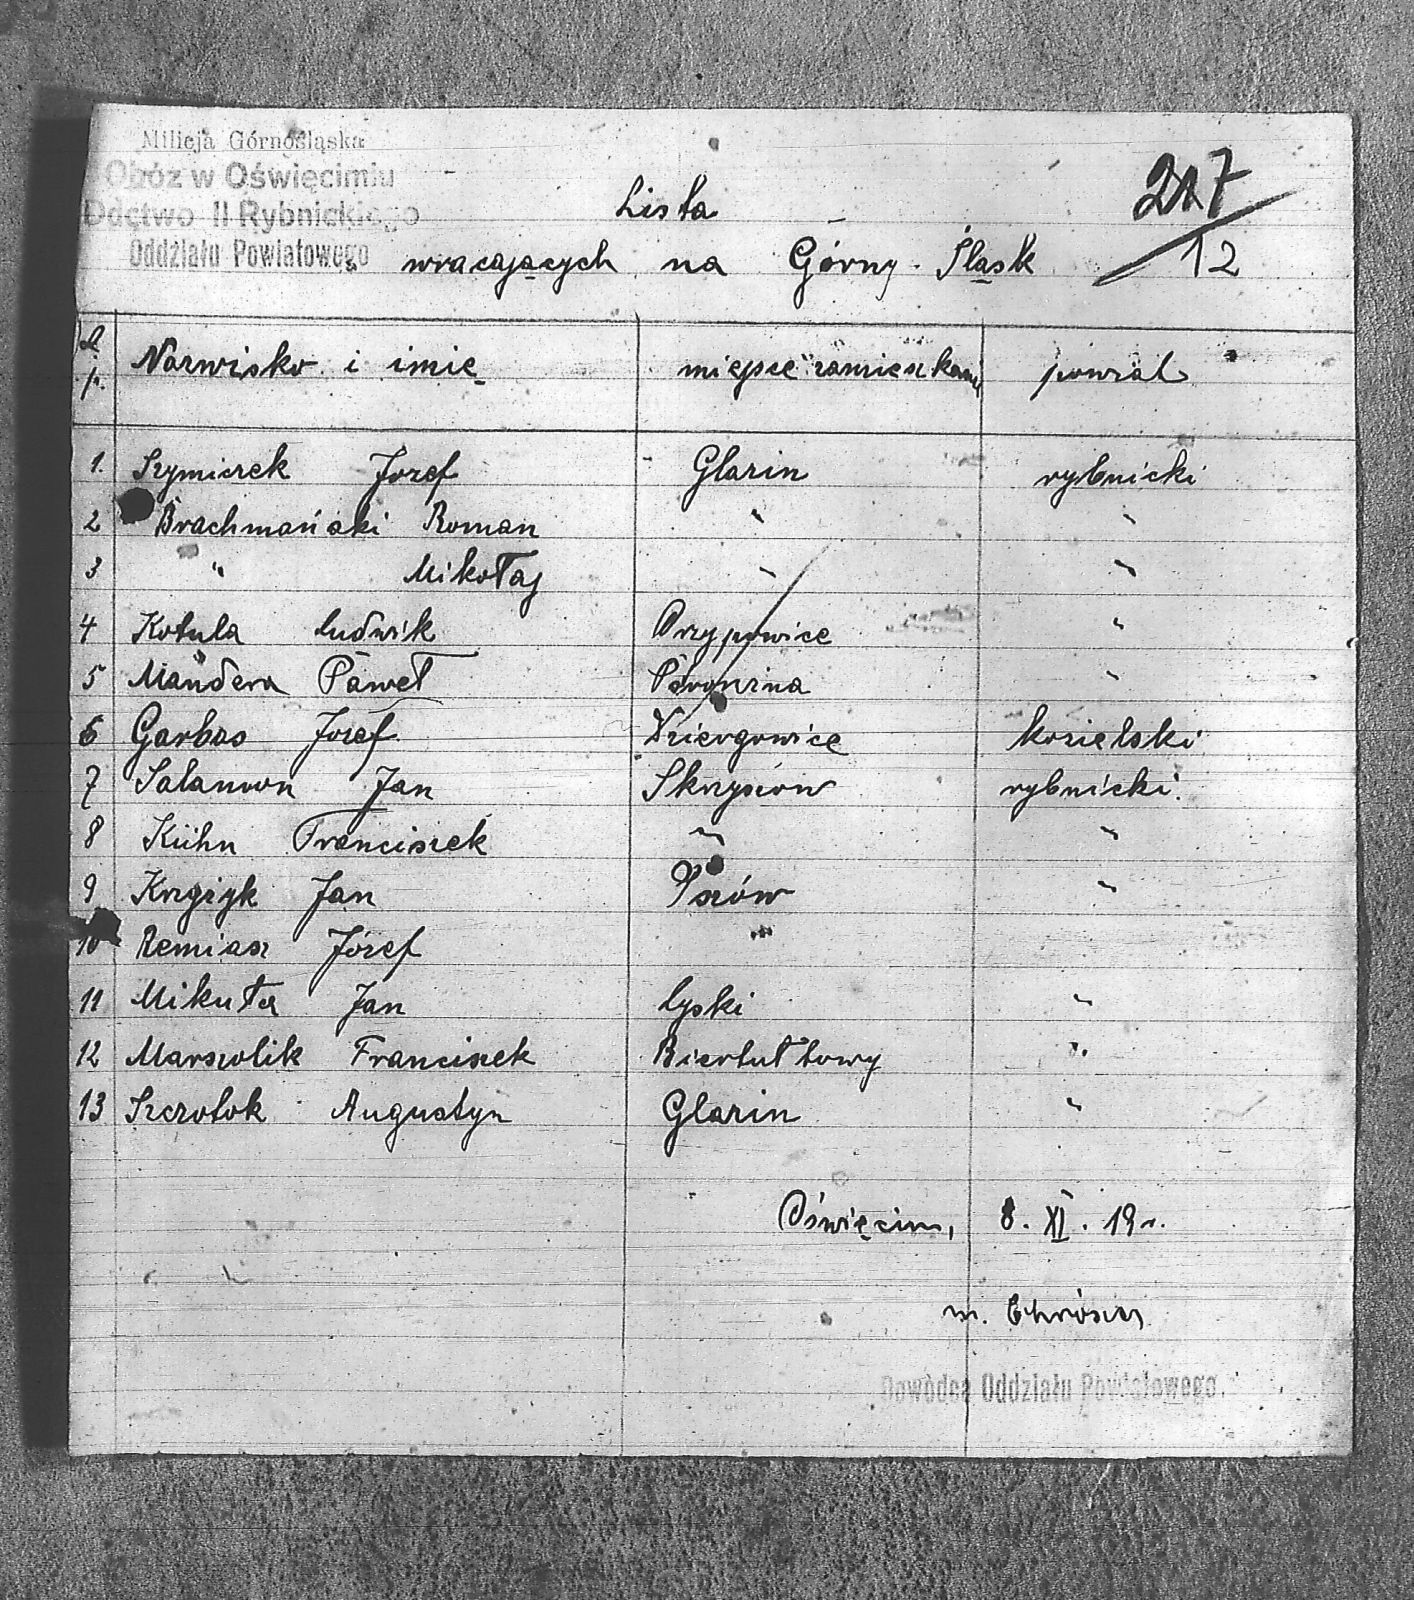 Milicja Górnośląska
Obóz w Oświęcimiu
Ddctwo II Rybnickiego
Oddziału Powiatowego
217
12
Lista
wracających na Górny-Śląsk
L. p. Nazwisko i imię miejsce zamieszkania powiat
1. Szymiczek Jozef Glazin rybnicki
2 Brachmański Roman " "
3 " Mikołaj " "
4 Kotula Ludwik "
5 Mandera Paweł "
6 Garbas Józef Dziergowice kozielski
7 Salamon Jan Skrzyszow rybnicki.
8 Kühn Franciszek " "
9 Krzyżyk Jan Pszów "
10 Remiasz Józef "
11 Mikuła Jan Lyski "
12 Marszolik Franciszek Biertułtowy "
13 Szczotok Augustyn Glazin "
Oświęcim, 8. XI. 19 r.
Dowódca Oddziału Powiatowego